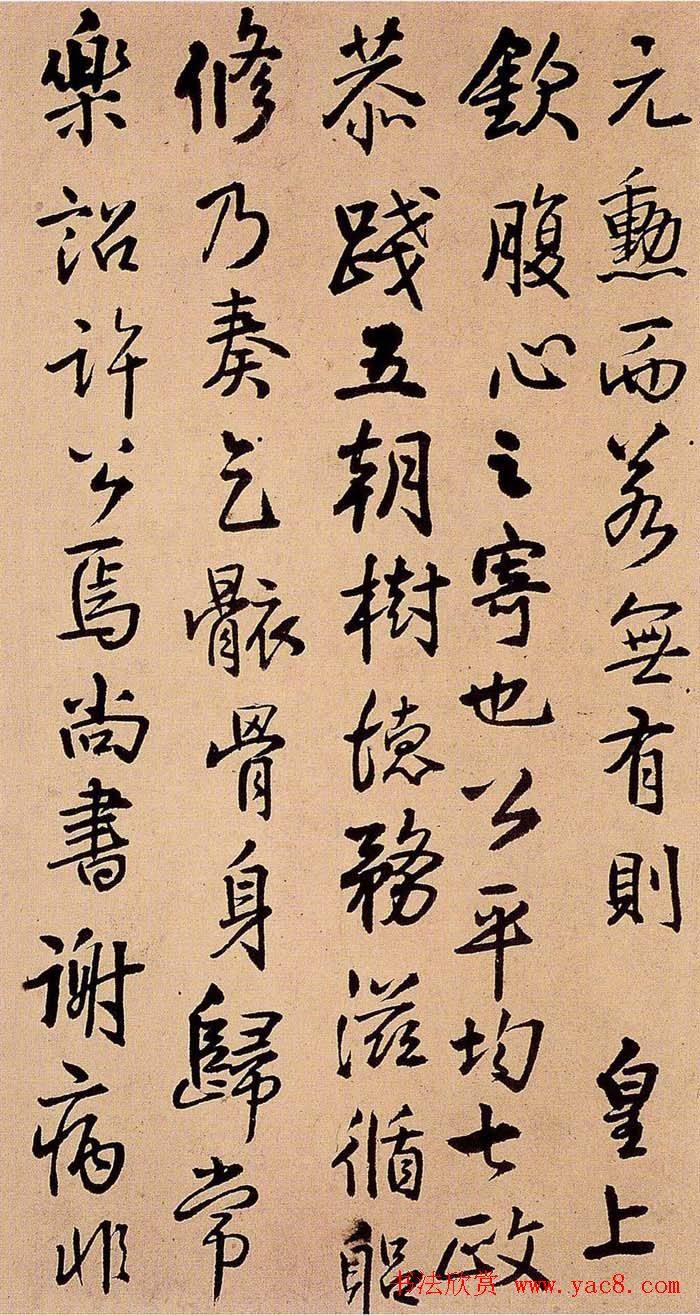 元勳而若無有則 皇上
欽腹心之寄也公平均七政
恭踐五朝樹德務滋循躳
修乃奏乞骸骨身歸常
樂詔許公焉尚書謝病非
书法欣赏 www.yac8.com